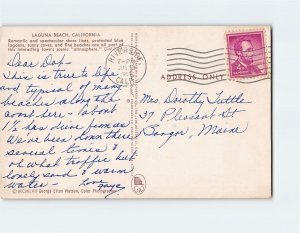 LAGUNA BEACH, CALIFORNIA
Romantic and spectacular shore lines, protected blue
lagoons, sunny caves, and fine beaches are all part of
this interesting town's scenic "atmosphere."
Dear Dot-
This is true to life
and typical of many
beaches along the
coast here - about
1½ hrs drive from us
We've been down there
several times &
oh what traffic but
lovely sand & warm
water - Love
Faye
RIVERSIDE
7-PM
CALIF
ADDRESS ONLY
Mrs Dorothy Tuttle
37 Pleasant St
Bangor, Maine
© MCMLVIII George Elton Watson, Color Photography